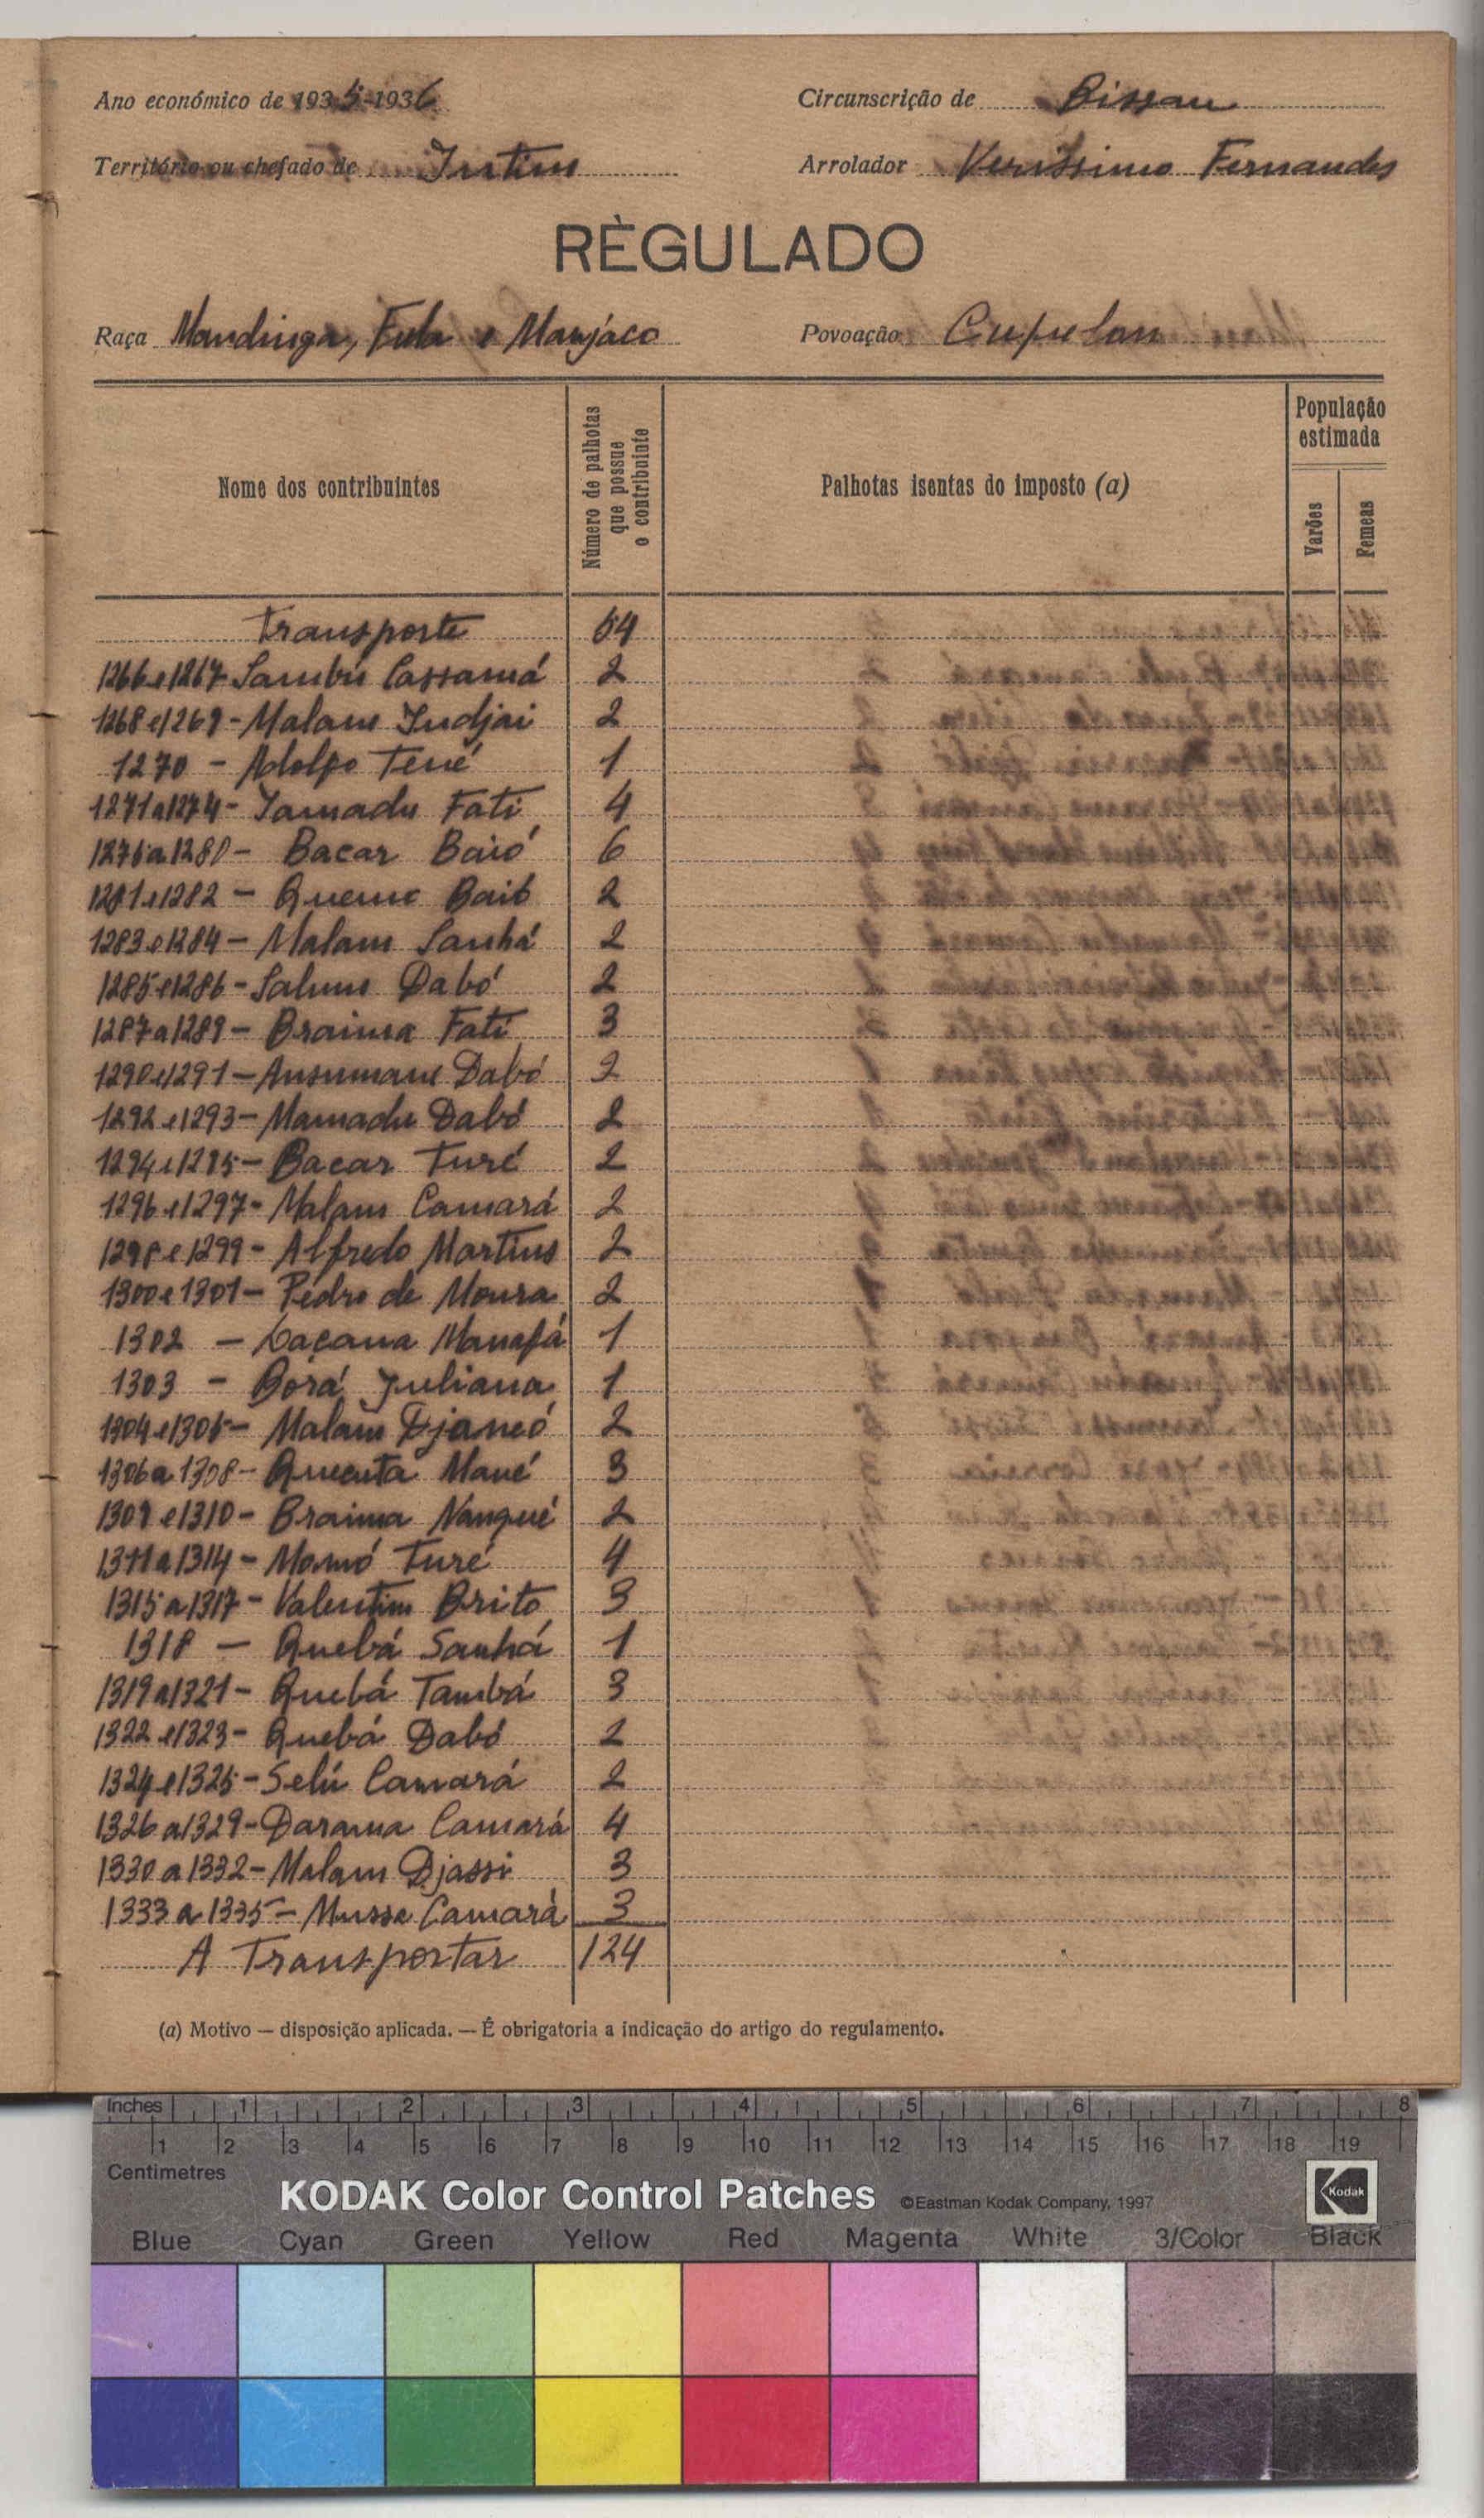 Ano económico de 1935-1936 Circunscrição de Bissau
Território ou chefado de Intim Arrolador Veríssimo Fernandes
RÈGULADO
Raça Mandinga, Fula e Manjaco Povoação Cupelon
Nome dos contribuintes
Número de palhotas
que possue
o contribuinte
Palhotas isentas do imposto (a)
População
estimada
Varões
Femeas
Transporte 54
1266 e 1267 - Sambú Cassamá 2
1268 e 1269 - Malam Indjai 2
1270 - Adolfo Tené 1
1271 a 1274 - Iamadu Fati 4
1275 a 1280 - Bacar Baió 6
1281 e 1282 - Queme Baió 2
1283 e 1284 - Malam Sanhá 2
1285 e 1286 - Salum Dabó 2
1287 a 1289 - Braima Fati 3
1290 e 1291 - Ansumane Dabó 2
1292 e 1293 - Mamadu Dabó 2
1294 e 1295 - Bacar Turé 2
1296 e 1297 - Malam Camará 2
1298 e 1299 - Alfredo Martins 2
1300 e 1301 - Pedro de Moura 2
1302 - Laçana Manafá 1
1303 - Borá Juliana 1
1304 e 1305 - Malam Djancó 2
1306 a 1308 - Quecuta Mané 3
1309 e 1310 - Braima Nanqué 2
1311 a 1314 - Momó Turé 4
1315 a 1317 - Valentim Brito 3
1318 - Quebá Sanhá 1
1319 a 1321 - Quebá Tambá 3
1322 e 1323 - Quebá Dabó 2
1324 e 1325 - Selú Camará 2
1326 a 1329 - Darama Camará 4
1330 a 1332 - Malam Djassi 3
1333 a 1335 - Mussa Camará 3
A Transportar 124
(a) Motivo — disposição aplicada. — É obrigatoria a indicação do artigo do regulamento.
Inches 1 2 3 4 5 6 7 8
1 2 3 4 5 6 7 8 9 10 11 12 13 14 15 16 17 18 19
Centimetres
KODAK Color Control Patches ©Eastman Kodak Company, 1997 Kodak
Blue Cyan Green Yellow Red Magenta White 3/Color Black